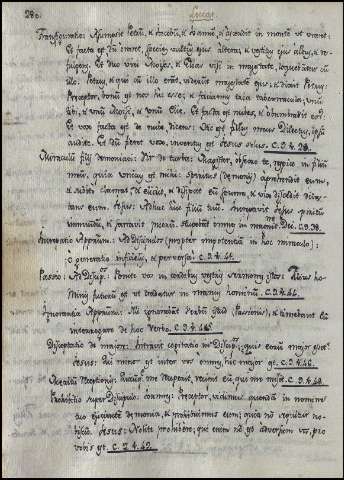 280. Lucas
Transfiguratio: Assumpsit Petrū, & Iacobū, & Ioannē, & ascendit in montē ut oraret.
Et facta est dū oraret, species vultus ejus altera, & vestitus ejus albus, & re-
fulgens. Et duo viri Moyses, & Elias visi in majestate, loquebatur cū
illo. Petrus, & qui cū illo erāt, viderūt majestatē ejus, & dixit Petrus:
Præceptor, bonū est nos hic esse; & faciamus tria tabernacula, unū
tibi, & unū Moysi, & unū Eliæ. Et facta est nubes, & obumbravit eos.
Et vox facta est de nube, dicens: Hic est filius meus dilectus, ipsū
audite. Et dū fieret vox, inventus est Jesus solus. C. 9. 28.
Miraculū filij demoniaci: Vir de turba: Magister, obsecro te, respice in filiū
meū, quia unicus est mihi: Spiritus apprehendit eum,
& subitò clamat, & elidit, & dissipat eū cum spuma, & vix discedit dilanians
eum. Jesus: Adhuc huc filiū tuū. Increpavit Jesus spiritū
immundū, & sanavit puerū. Stupebāt omnes in magnit. Dei. C. 9. 38.
Increpatio Apostolorū: Ad Discipulos (propter impotentiā in hoc miraculo):
O generatio infidelis, & perversa! C. 9. 41.
Passio: Ad Discip. Ponite vos in cordibus vestris sermones istos: Filius ho-
minis futurū est ut tradatur in manus hominū. C. 9. 44.
Ignorantia Apostolorū: Illi ignorabāt verbū istud (Passionis), & timebant eū
interrogare de hoc verbo. C. 9. 45.
Disceptatio de majori: Intravit cogitatio in Discip. quis eorū major esset.
Jesus: Qui minor est inter vos omnes, hic major est. C. 9. 46.
me receperit, recipit eū qui me misit. C. 9. 48.
Prohibitio super Discipulos: Joannes: Præceptor, vidimus quendā in nomine
tuo ejicientē demonia, & prohibuimus eum; quia nō sequitur no-
biscū. Jesus: Nolite prohibere; qui enim nō est adversum vos, pro
vobis est. C. 9. 49.